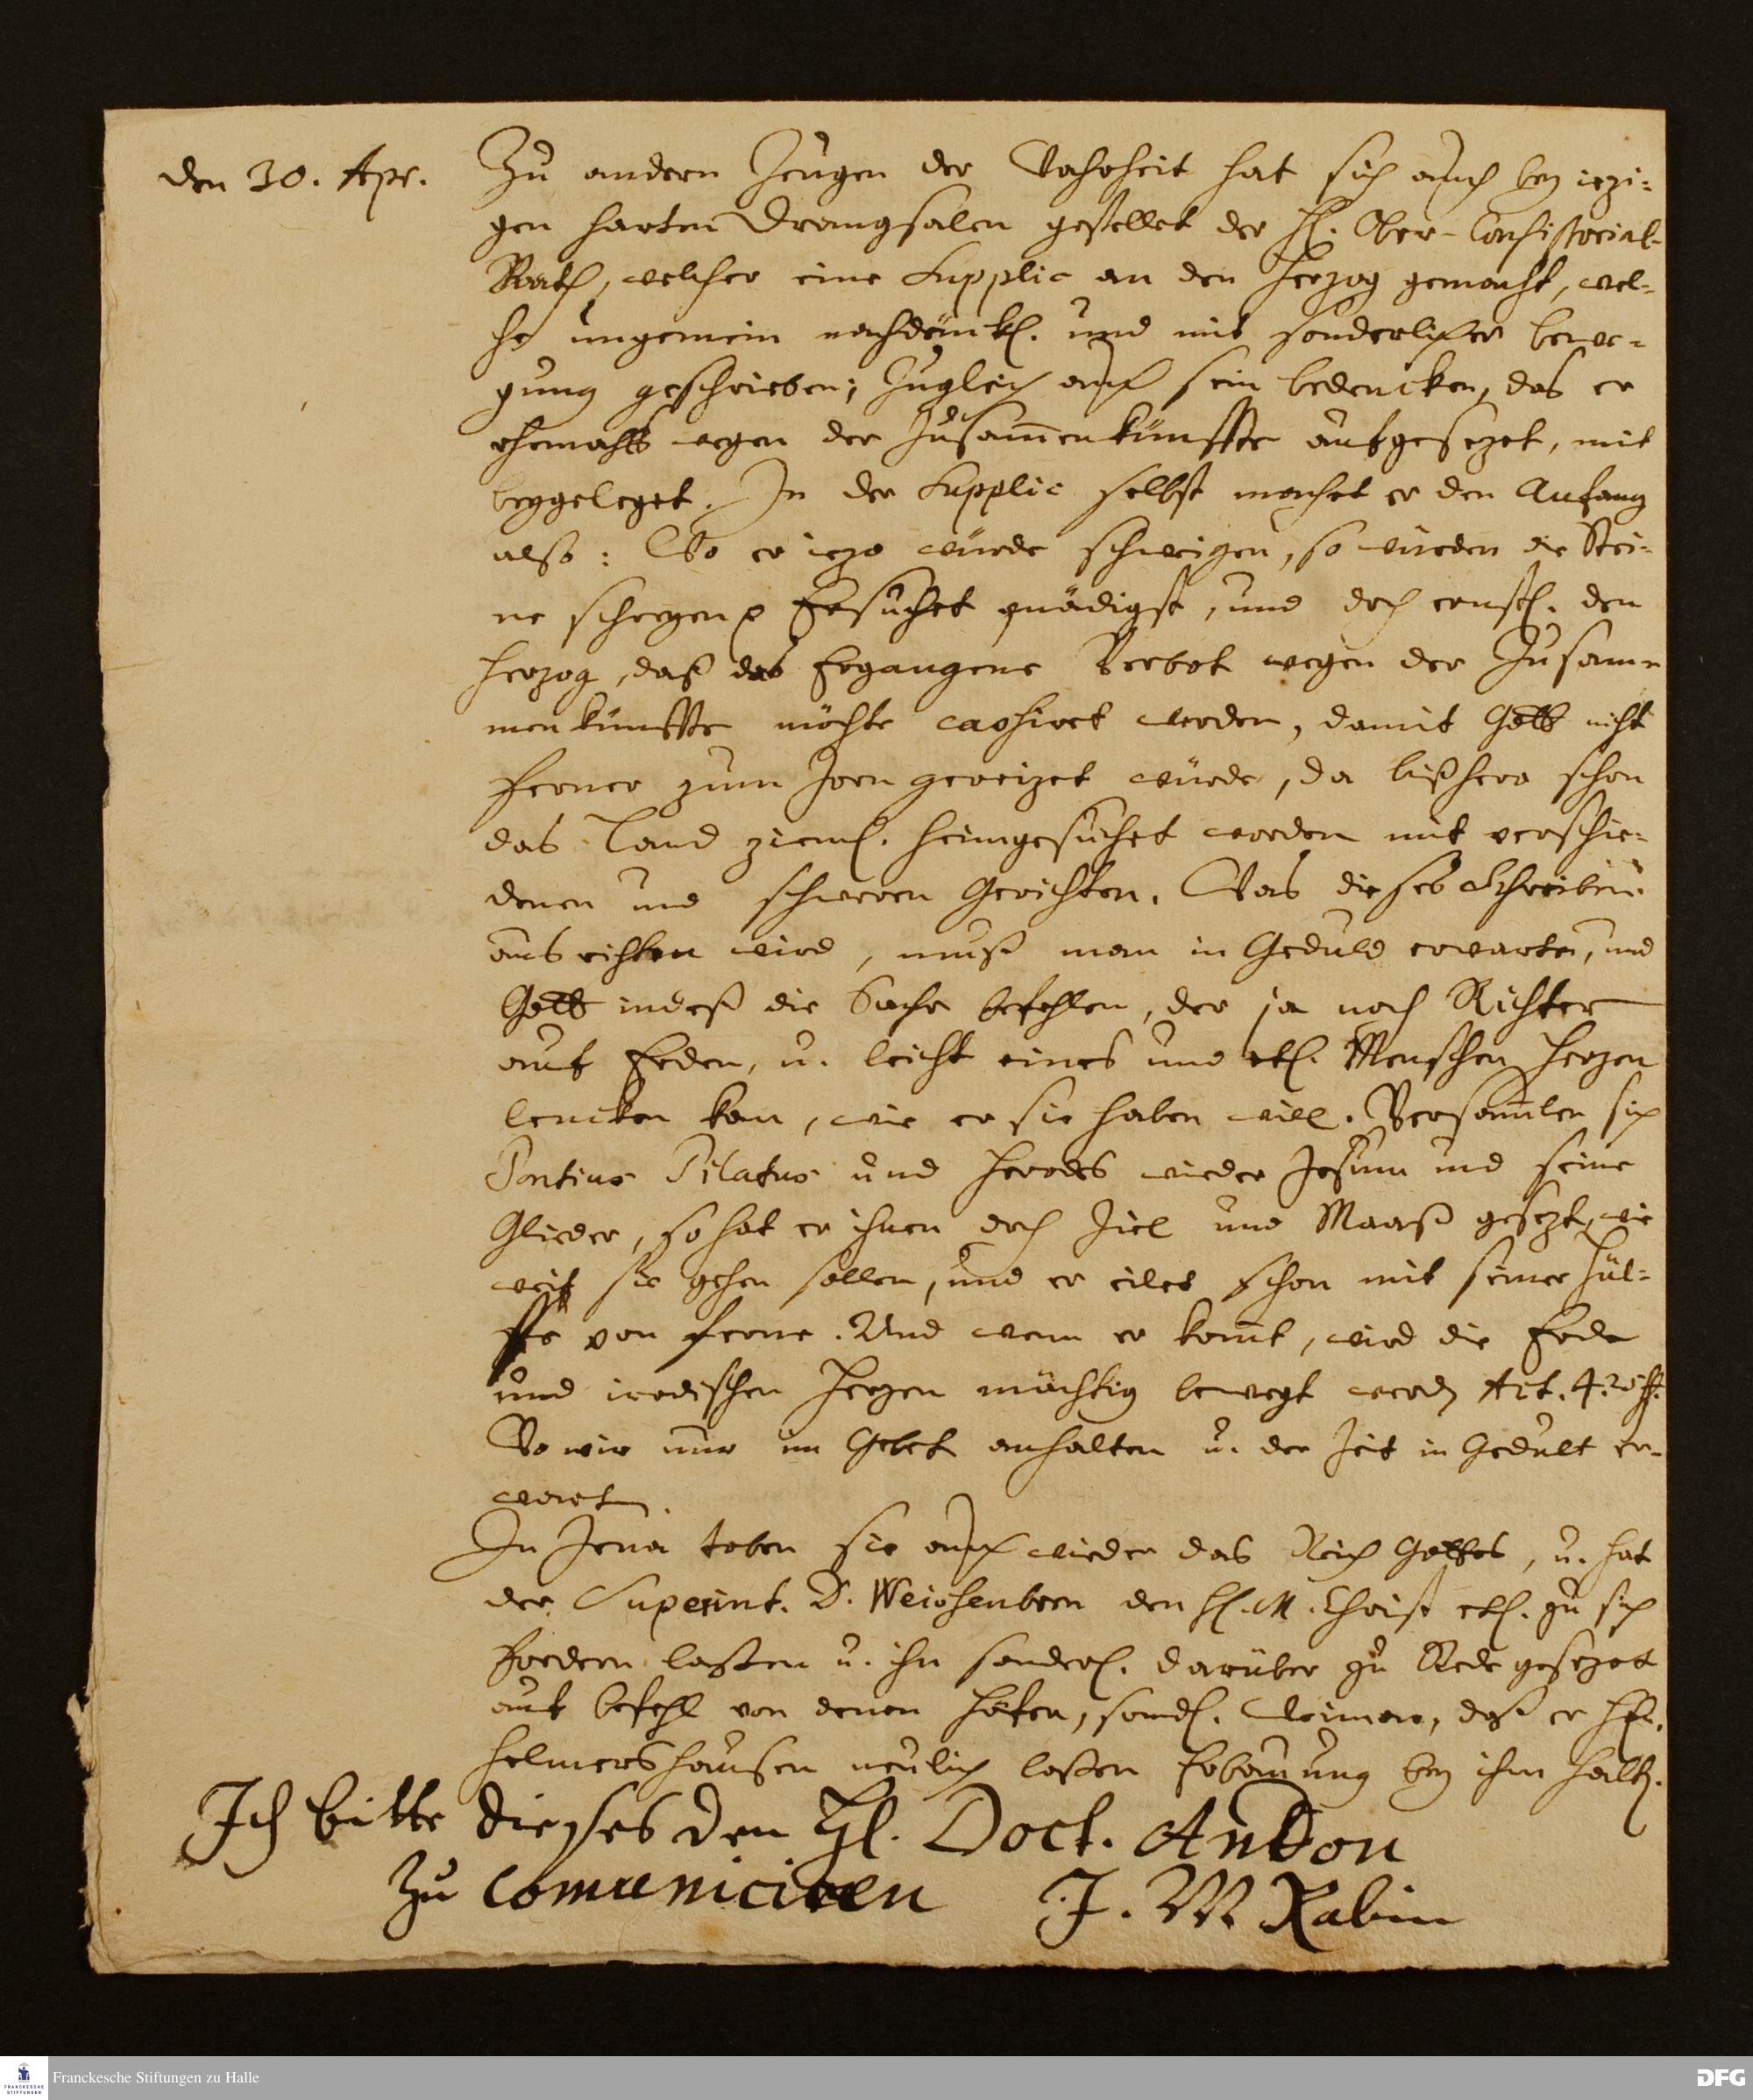 den 30. Apr.
Zu andern Zeugen der Wahrheit hat sich auch bey iezi-
gen harten Drangsalen gestellet der H. Ober-Consistorial-
Rath, welcher eine Supplic an den Herzog gemacht, wel-
che ungemein nachdenckl. und mit sonderlicher bewe-
gung geschrieben; Zugleich auch sein bedencken, das er
ehemahls wegen der Zusam̅enkünffte aufgesezet, mit
beygeleget. In der Supplic selbst machet er den Anfang
also: Wo er iezo würde schweigen, so würden die Stei-
ne schreyen Ersuchet gnädigst, und doch ernstl. den
Herzog, daß das Ergangene Verbot wegen der Zusam-
menkünffte möchte cashiret werden, damit Gott nicht
ferner zum Zorn gereizet würde, da bißhero schon
das Land zieml. heimgesuchet worden mit verschie-
denen und schweren Gerichten. Was dieses Schreiben
ausrichten wird, muß man in Geduld erwarten, und
Gott indeß die Sache befehlen, der ja noch Richter
auf Erden, u. leicht eines und etl. Menschen Herzen
lencken kan, wie er sie haben will. Versam̅len sich
Pontius Pilatus und Herodes wieder Jesum und seine
Glieder, so hat er ihnen doch Ziel und Maaß gesezt, wie
weit sie gehen sollen, und er eilet schon mit seiner Hül-
ffe von ferne. Und wenn er kom̅t, wird die Erde
und irrdischen Herzen mächtig bewegt werden Act. 4.
Wo wir nur im Gebet anhalten u. der Zeit in Gedult er-
warten.
In Jena toben sie auch wieder das Reich Gottes, u. hat
der Superint. D. Weishenborn den H. M. Christ etl. zu sich
fordern laßen u. ihn sonderl. darüber zu Rede gesezet
auf befehl von denen Höfen, sonderl. Weimar, daß er H.
Helmershausen neulich laßen Erbauung bey ihm halten.
Ich bitte dieses den H. Doct. Anton
zu comuniciren J. M Rabin
Franckesche Stiftungen zu Halle
FRANCKESCHE STIFTUNGEN
DFG